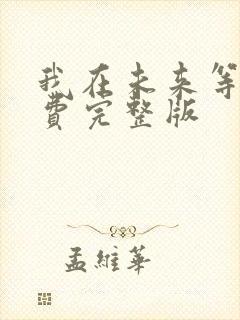 我在未来等
費完整版
孟維華